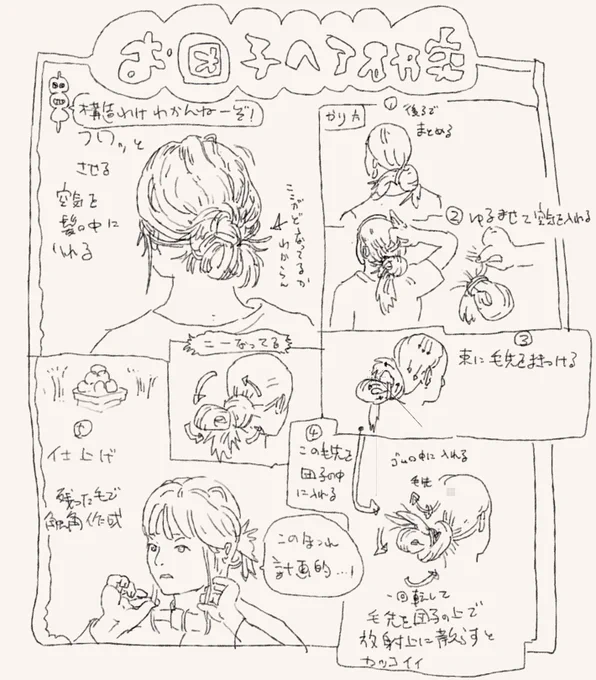 お団子ヘア研究
構造わけわかんねーぞ!
フワッと
させる
空気を
髪の中に
いれる
ここがどうなってるか
わからん
やり方
①
後ろで
まとめる
② ゆるませて空気を入れる
こーなってる
③
束に毛先をまきつける
④
この毛先を
団子の中
に入れる
ゴムの中に入れる
毛先
一回転して
毛先を団子の上で
放射上に散らすと
カッコイイ
仕上げ
残った毛で
触角作成
このほつれ
計画的…!